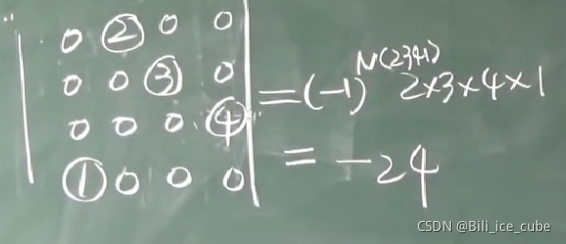 0 2 0 0
0 0 3 0
0 0 0 4
1 0 0 0
=(-1)^N(2341) 2×3×4×1
= -24
CSDN @Bili_ice_cube